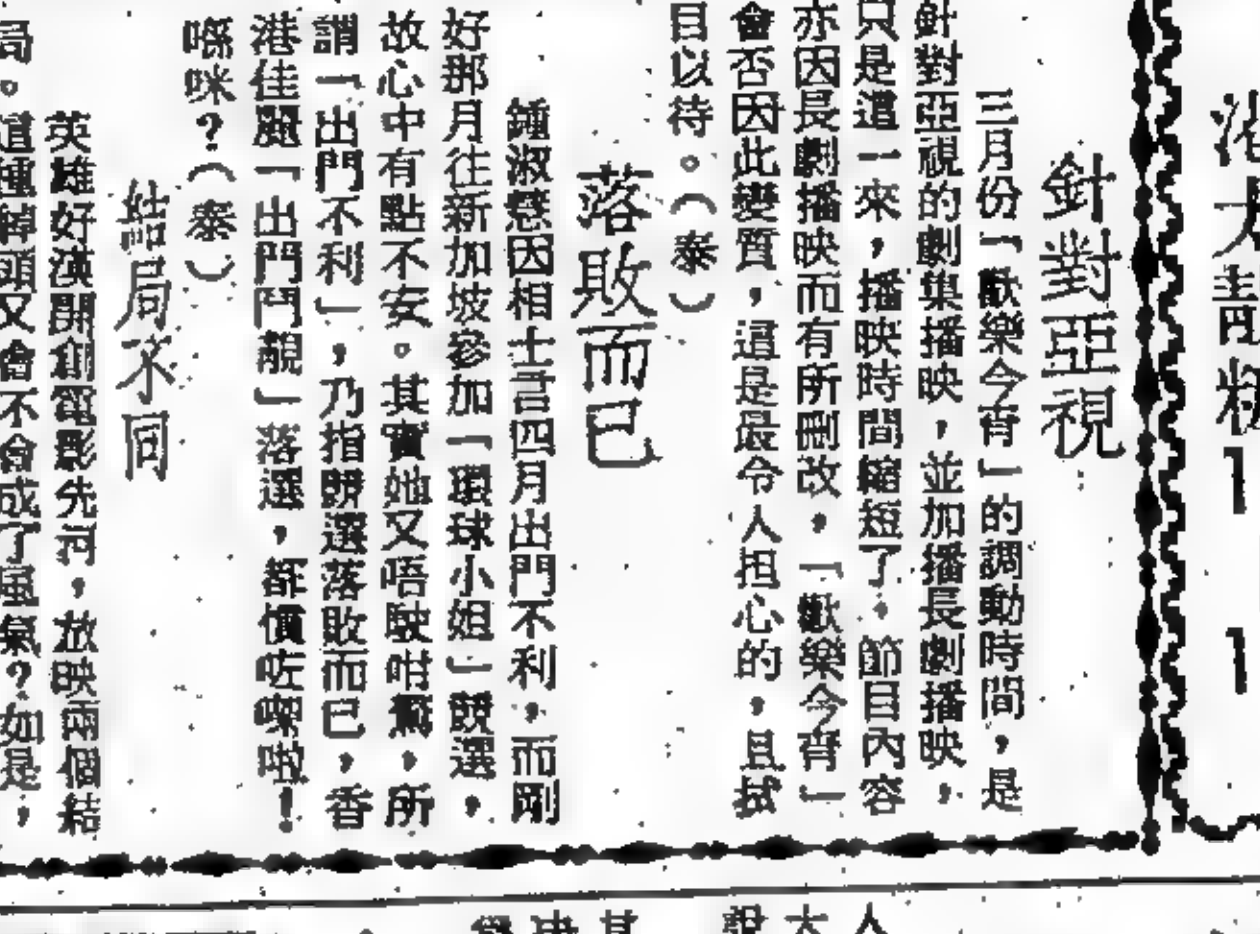 針對亞視
三月份「歡樂今宵」的調動時間，是
針對亞視的劇集播映，並加播長劇播映，
只是這一來，播映時間縮短了。節目內容
亦因長劇播映而有所刪改，「歡樂今宵」
會否因此變質，這是最令人担心的，且拭
目以待。（泰）
落敗而已
鍾淑慧因相士言四月出門不利，而剛
好那月往新加坡參加「環球小姐」競選，
故心中有點不安。其實她又唔駛咁驚，所
謂「出門不利」，乃指競選落敗而已，香
港佳麗「出門鬥靚」落選，都慣咗㗎啦！
喺咪？（泰）
結局不同
英雄好漢開創電影先河，放映兩個結
局。這種綽頭又會不會成了風氣？如是，